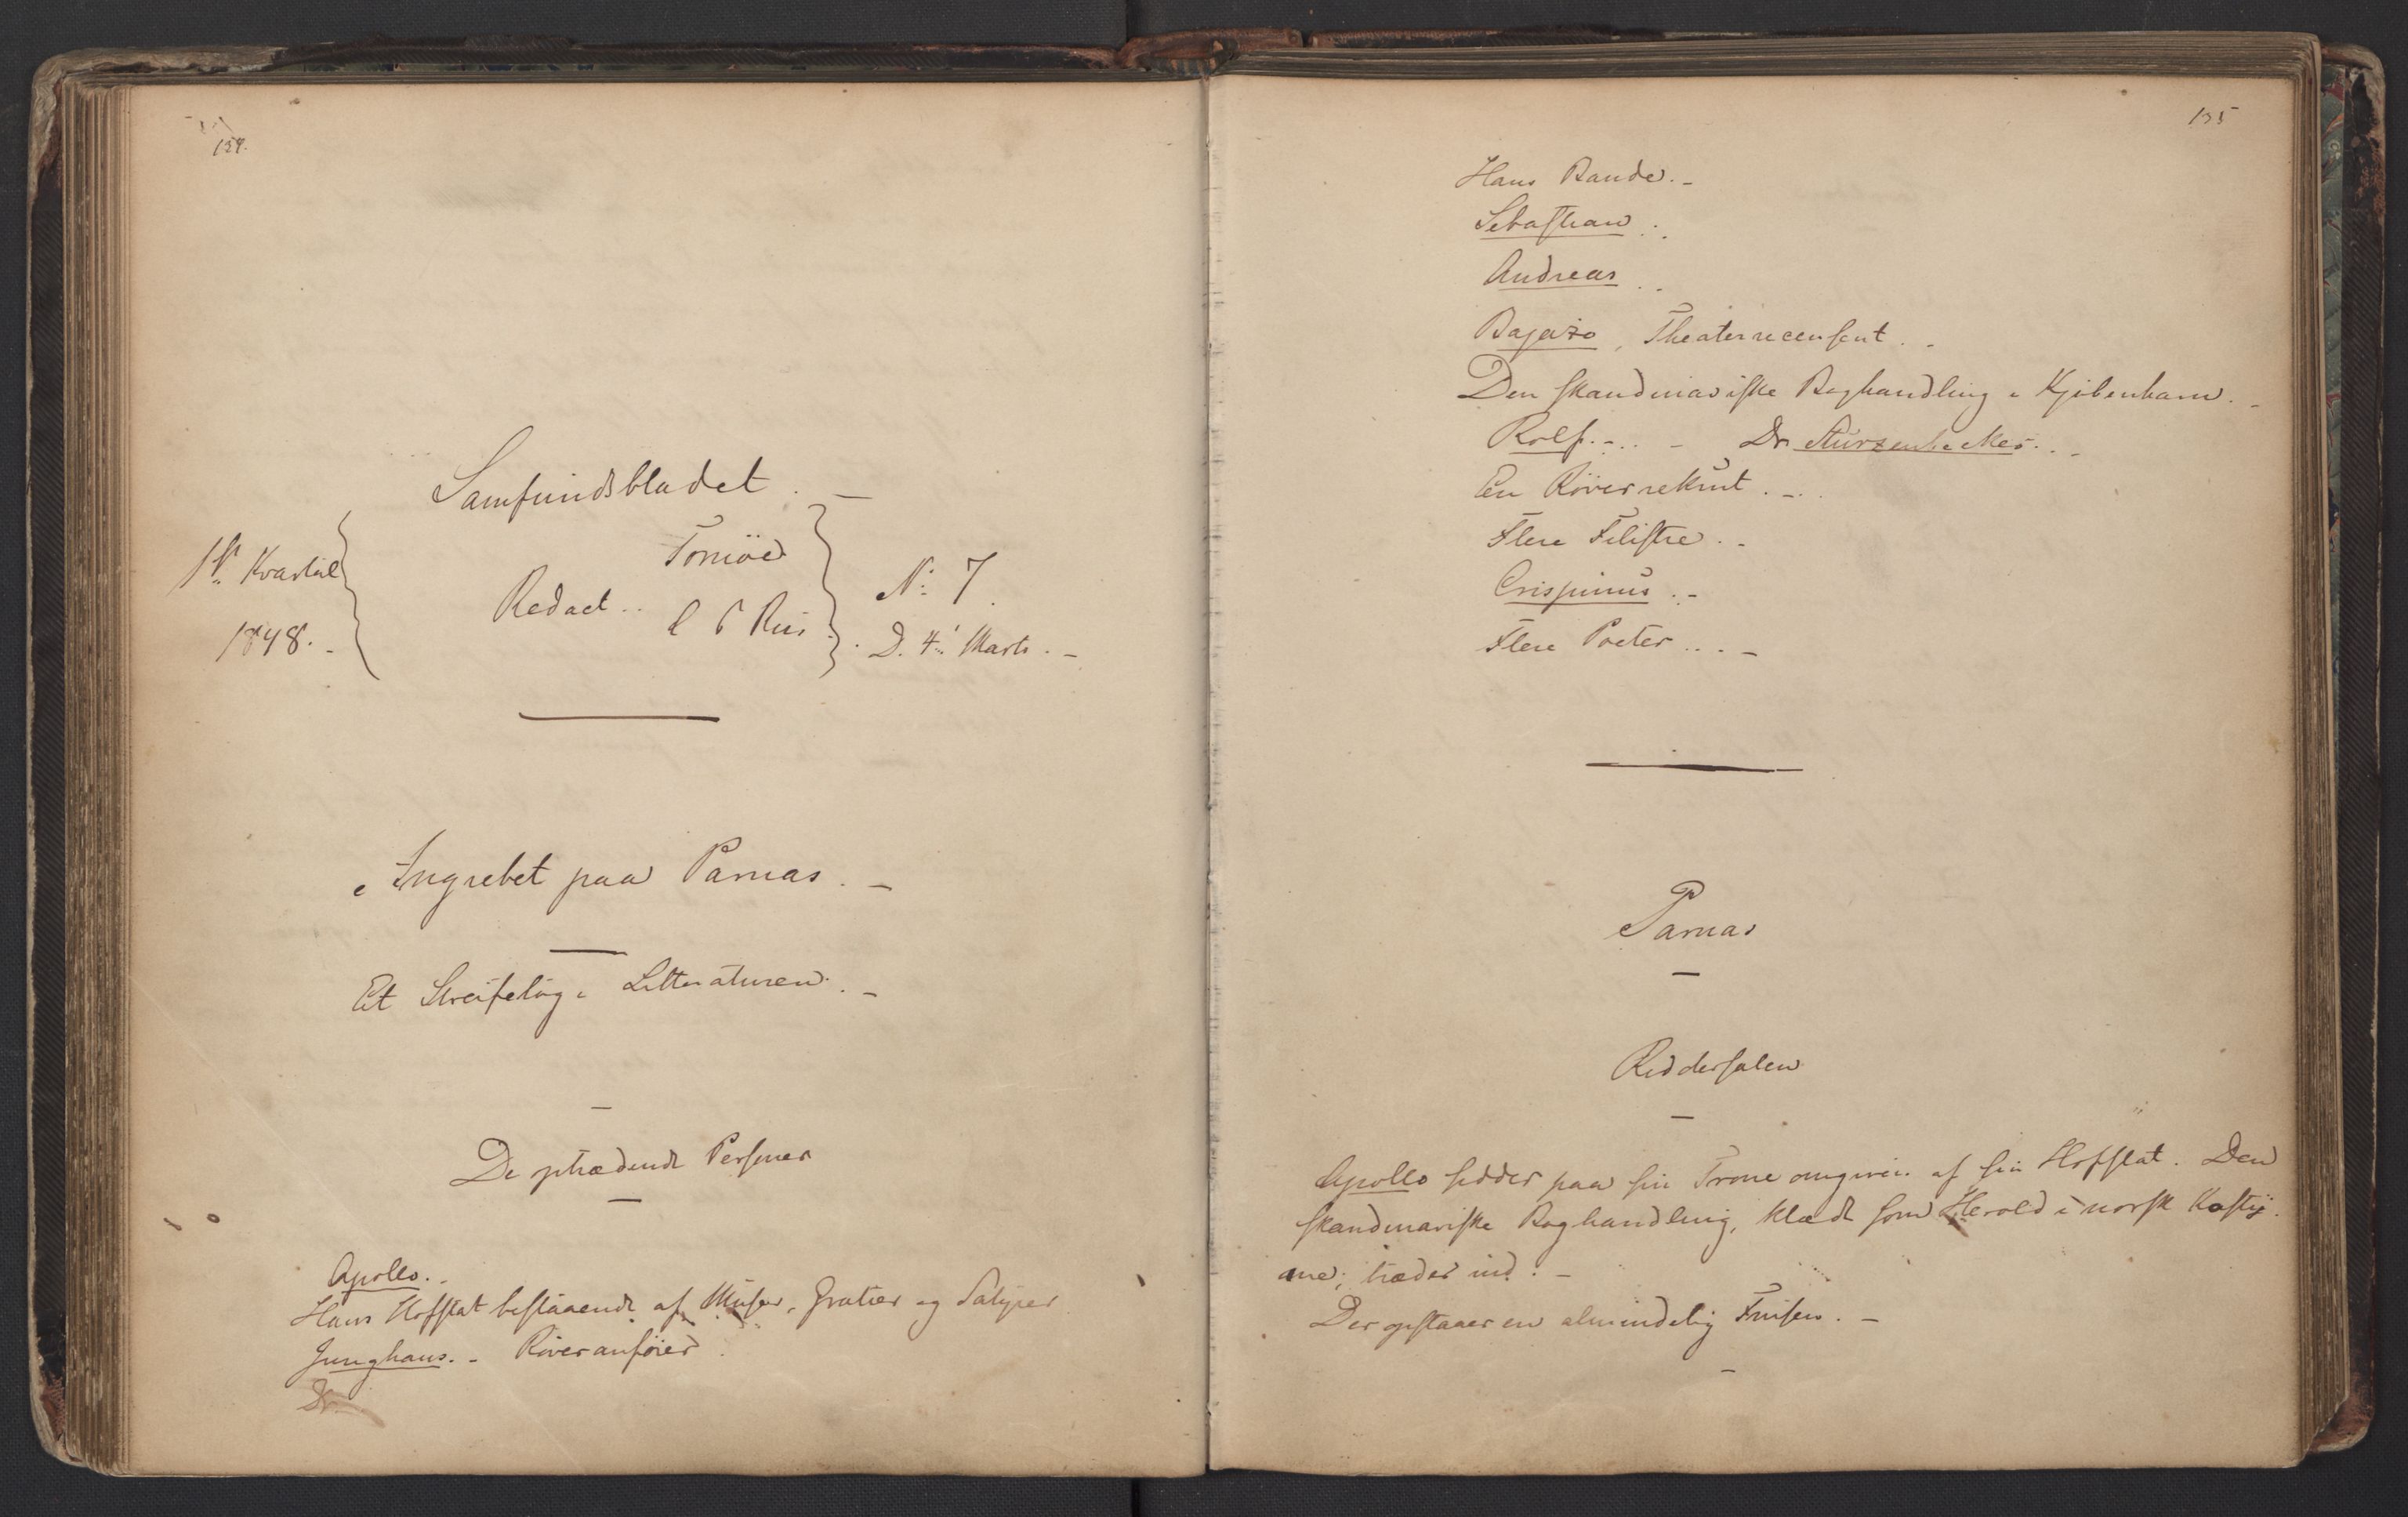 134.
Samfundsbladet. —
1ste Kvartal
1848. -
Redact..
Tomöe
C P Riis
No 7.
D. 4de Marts. -
Angrebet paa Parnas. —
Et Streiftog i Litteraturen. -
De optrædende Personer
Apollo. -
Hans Hofstat bestaaende af Muser, Gratier og Satyrer
Junghans. - Röveranförer.
Dr.
135
Hans Bande. -
Sebastian..
Andreas..
Bajazo, Theaterrecensent. -
Den skandinaviske Boghandling i Kjöbenhavn. -
Rolf... - Dr. Sturzenbecker...
En Röverrekrut. -
Flere Filistre. -
Crispinus. -
Flere Poeter... -
Parnas
Riddersalen
Apollo sidder paa sin Trone omgiven af sin Hofstat. Den
skandinaviske Boghandling, klædt som Herold i norsk Kosty-
me, træder ind. -
Der opstaaer en almindelig Fnisen. -